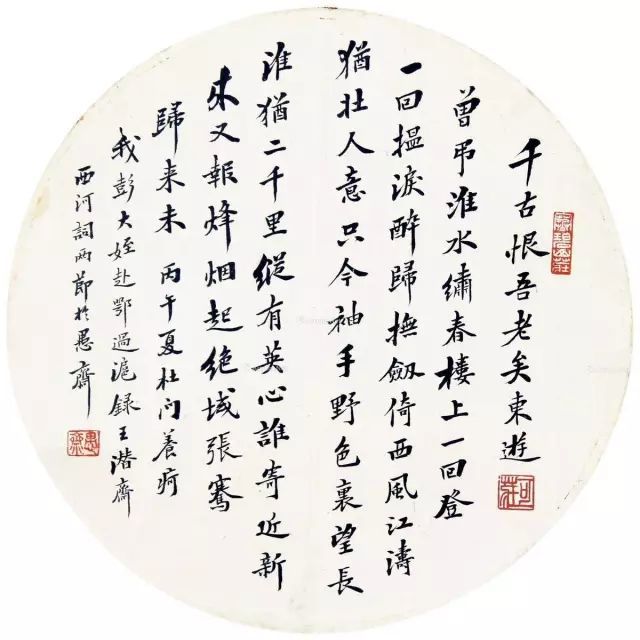 千古恨吾老矣東遊
曾弔淮水繡春樓上一回登
一回搵淚醉歸撫劔倚西風江濤
猶壯人意只今袖手野色裏望長
淮猶二千里縱有英心誰寄近新
来又報烽烟起絶域張騫
歸来未 丙午夏杜门養疴
我彭大姪赴鄂過滬録王潜齋
西河詞兩節於愚齋
愚齋